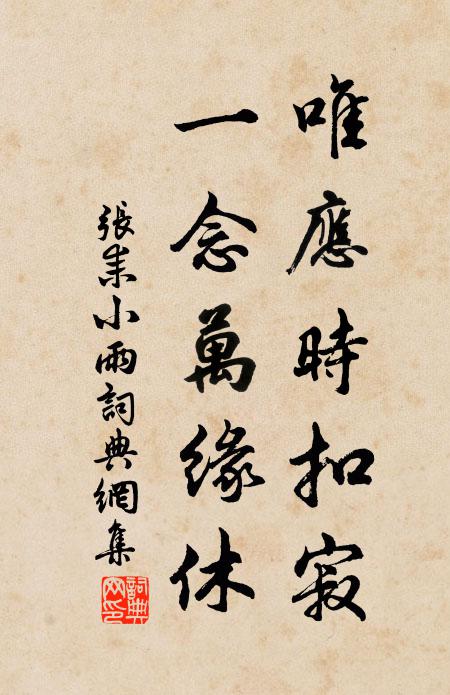 唯應時扣寂
一念萬緣休
張耒小雨詞典網集
詞典網印